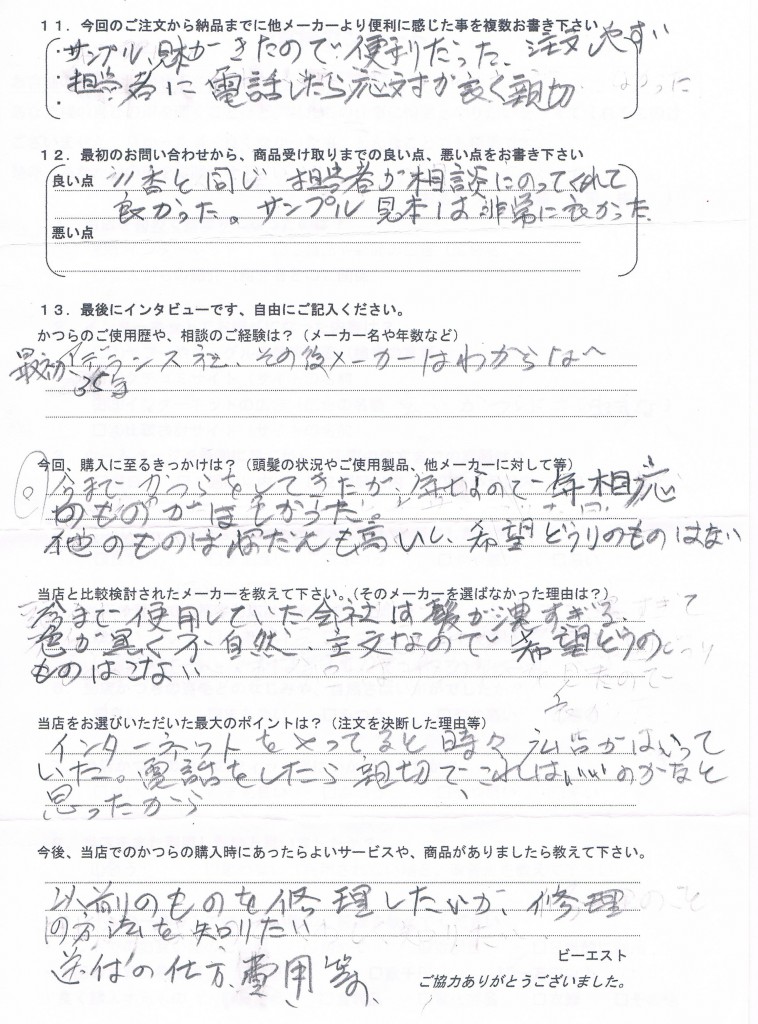 11．今回のご注文から納品までに他メーカーより便利に感じた事を複数お書き下さい
・サンプル、見本ができたので便利だった、注文しやすい
・担当者に電話したら応対が良く親切
・
12．最初のお問い合わせから、商品受け取りまでの良い点、悪い点をお書き下さい
良い点 11番と同じ、担当者が相談にのってくれて
良かった。サンプル見本は非常に良かった、
悪い点
13．最後にインタビューです、自由にご記入ください。
かつらのご使用歴や、相談のご経験は？（メーカー名や年数など）
最初、アデランス社、その後メーカーはわからない
35年
今回、購入に至るきっかけは？（頭髪の状況やご使用製品、他メーカーに対して等）
今までかつらをしてきたが、年なので年相応
のものがほしかった。
他のものはねだんも高いし、希望どうりのものはない
当店と比較検討されたメーカーを教えて下さい。（そのメーカーを選ばなかった理由は？）
今まで使用していた会社は髪が濃すぎる、
色が黒く不自然、注文なので希望どうりの
ものはこない
当店をお選びいただいた最大のポイントは？（注文を決断した理由等）
インターネットをやってると時々広告がはいって
いた。電話をしたら親切で、これはいいのかなと
思ったから
今後、当店でのかつらの購入時にあったらよいサービスや、商品がありましたら教えて下さい。
以前のものを修理したいが、修理
の方法を知りたい
送付の仕方、費用等、
ビーエスト
ご協力ありがとうございました。